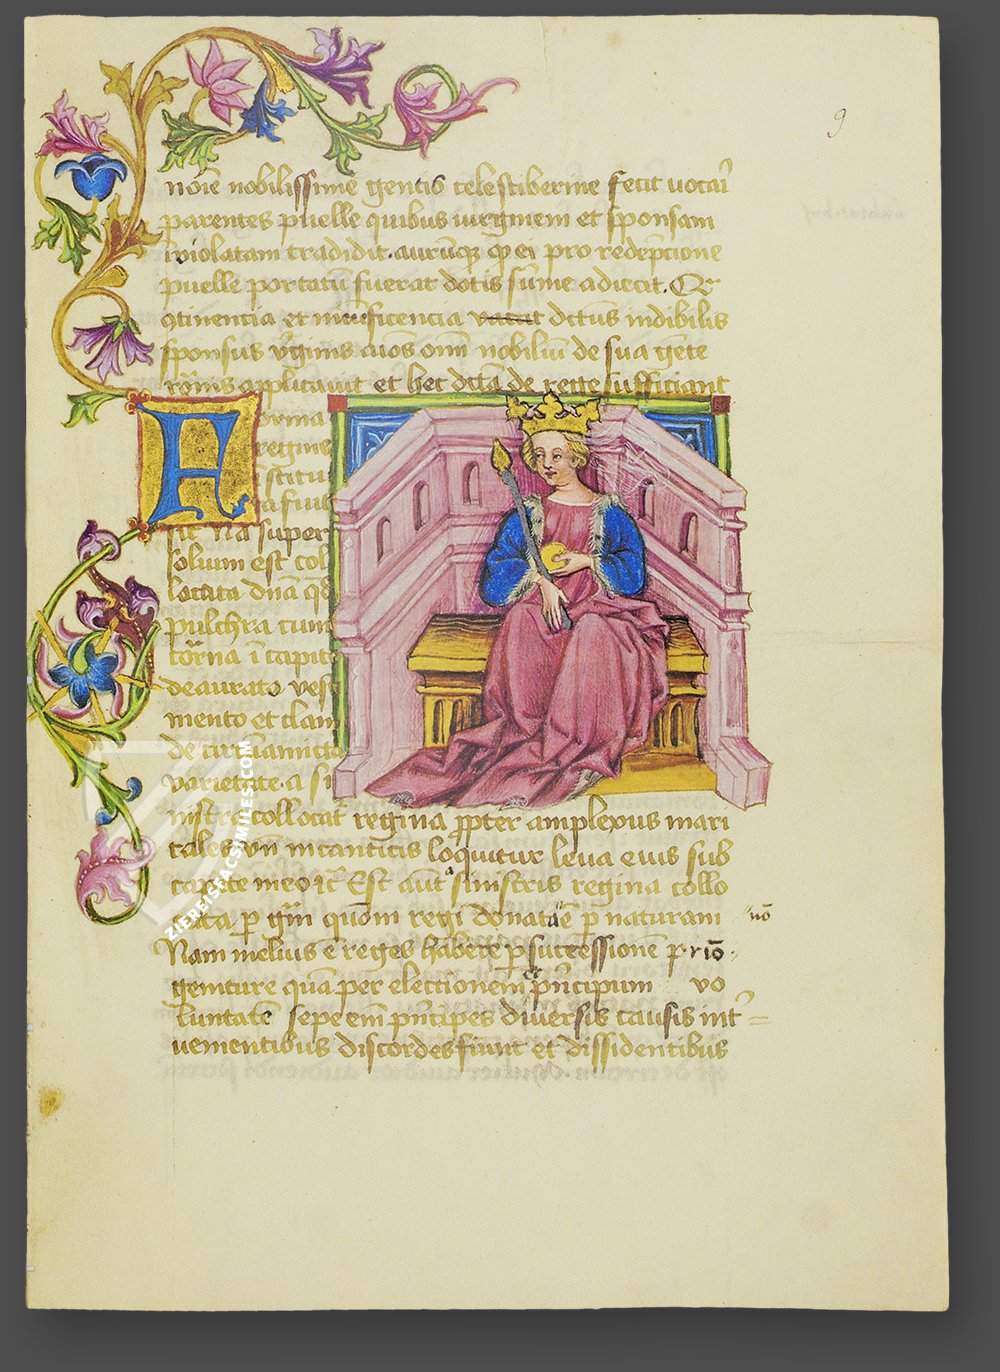 9
noīe nobilissime gentis celestiberine fecit uocari
parentes puelle quibus uirginem et sponsam
īuiolatam tradidit. aurumq; qd ei pro redēpcione
puelle portatū fuerat dotis sume adiecit. Qr
9tinencia et munificencia vacat dictus indibilis
sponsus v̄ginis aīos oīm nobiliū de sua gēte
rōnis applicauit et hec dicta de rege sufficiant
Forma
regine
istitu
ta fuit
sic Na super
solium est col
locata dn̄a qd
pulchra cum
corona ī capite
deaurato vesti
mento et clam
de circūamicta
varietate. a si
nistra collocat regina ꝓpter amplexus mari
tales vn̄ in canticis loquitur leua eius sub
capite meo ⁊c̄ Est aūt a sinistris regina collo
cata ꝑ gr̄am quōm regi donatā ē ꝑ naturam
nō
Nam melius ē reges habere ꝑ successionē prīo
geniture quā per electionem et pn̄cipum vo
luntatē sepe em̄ pn̄cipes diuersis causis int̄
uenientibus discordes fiunt et dissidentibus
ZIEREISFACSIMILES.COM